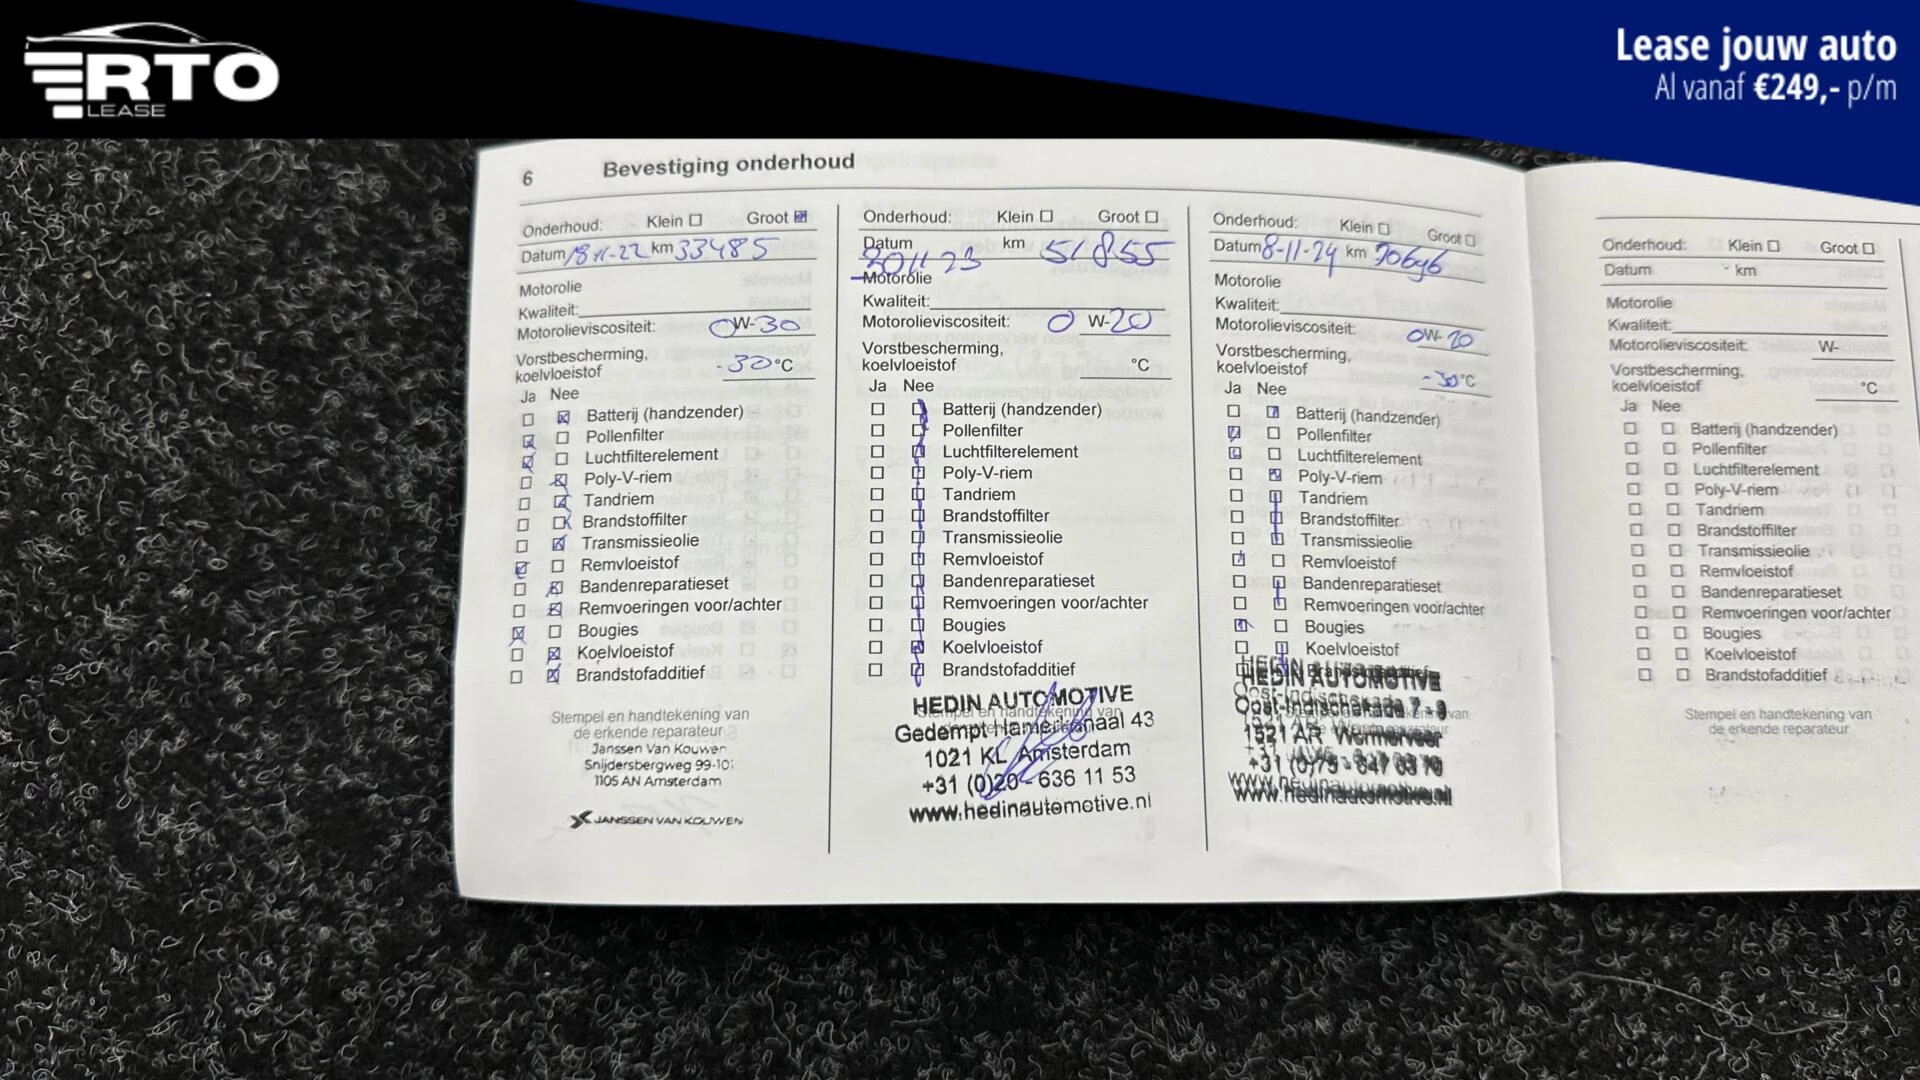 RTO
LEASE
Lease jouw auto
Al vanaf €249,- p/m
6
Bevestiging onderhoud
Onderhoud: Klein Groot
Datum 18-11-22 km 33485
Motorolie
Kwaliteit:
Motorolieviscositeit: 0W-30
Vorstbescherming,
koelvloeistof -30°C
Ja Nee
Batterij (handzender)
Pollenfilter
Luchtfilterelement
Poly-V-riem
Tandriem
Brandstoffilter
Transmissieolie
Remvloeistof
Bandenreparatieset
Remvoeringen voor/achter
Bougies
Koelvloeistof
Brandstofadditief
Stempel en handtekening van
de erkende reparateur
Janssen Van Kouwen
Snijdersbergweg 99-101
1105 AN Amsterdam
JANSSEN VAN KOUWEN
Onderhoud: Klein Groot
Datum km 51855
30 11 23
Motorolie
Kwaliteit:
Motorolieviscositeit: 0 W-20
Vorstbescherming,
koelvloeistof °C
Ja Nee
Batterij (handzender)
Pollenfilter
Luchtfilterelement
Poly-V-riem
Tandriem
Brandstoffilter
Transmissieolie
Remvloeistof
Bandenreparatieset
Remvoeringen voor/achter
Bougies
Koelvloeistof
Brandstofadditief
HEDIN AUTOMOTIVE
Stempel en handtekening van
Gedempt Hamerkanaal 43
1021 KL Amsterdam
+31 (0)20 - 636 11 53
www.hedinautomotive.nl
Onderhoud: Klein Groot
Datum 8-11-24 km 70696
Motorolie
Kwaliteit:
Motorolieviscositeit: 0W-20
Vorstbescherming,
koelvloeistof -30°C
Ja Nee
Batterij (handzender)
Pollenfilter
Luchtfilterelement
Poly-V-riem
Tandriem
Brandstoffilter
Transmissieolie
Remvloeistof
Bandenreparatieset
Remvoeringen voor/achter
Bougies
Koelvloeistof
HEDIN AUTOMOTIVE
Oost-Indischekade 7 - 9
1521 AR Wormerveer
+31 (0)75 - 647 63 70
www.hedinautomotive.nl
Onderhoud: Klein Groot
Datum km
Motorolie
Kwaliteit:
Motorolieviscositeit: W-
Vorstbescherming,
koelvloeistof °C
Ja Nee
Batterij (handzender)
Pollenfilter
Luchtfilterelement
Poly-V-riem
Tandriem
Brandstoffilter
Transmissieolie
Remvloeistof
Bandenreparatieset
Remvoeringen voor/achter
Bougies
Koelvloeistof
Brandstofadditief
Stempel en handtekening van
de erkende reparateur